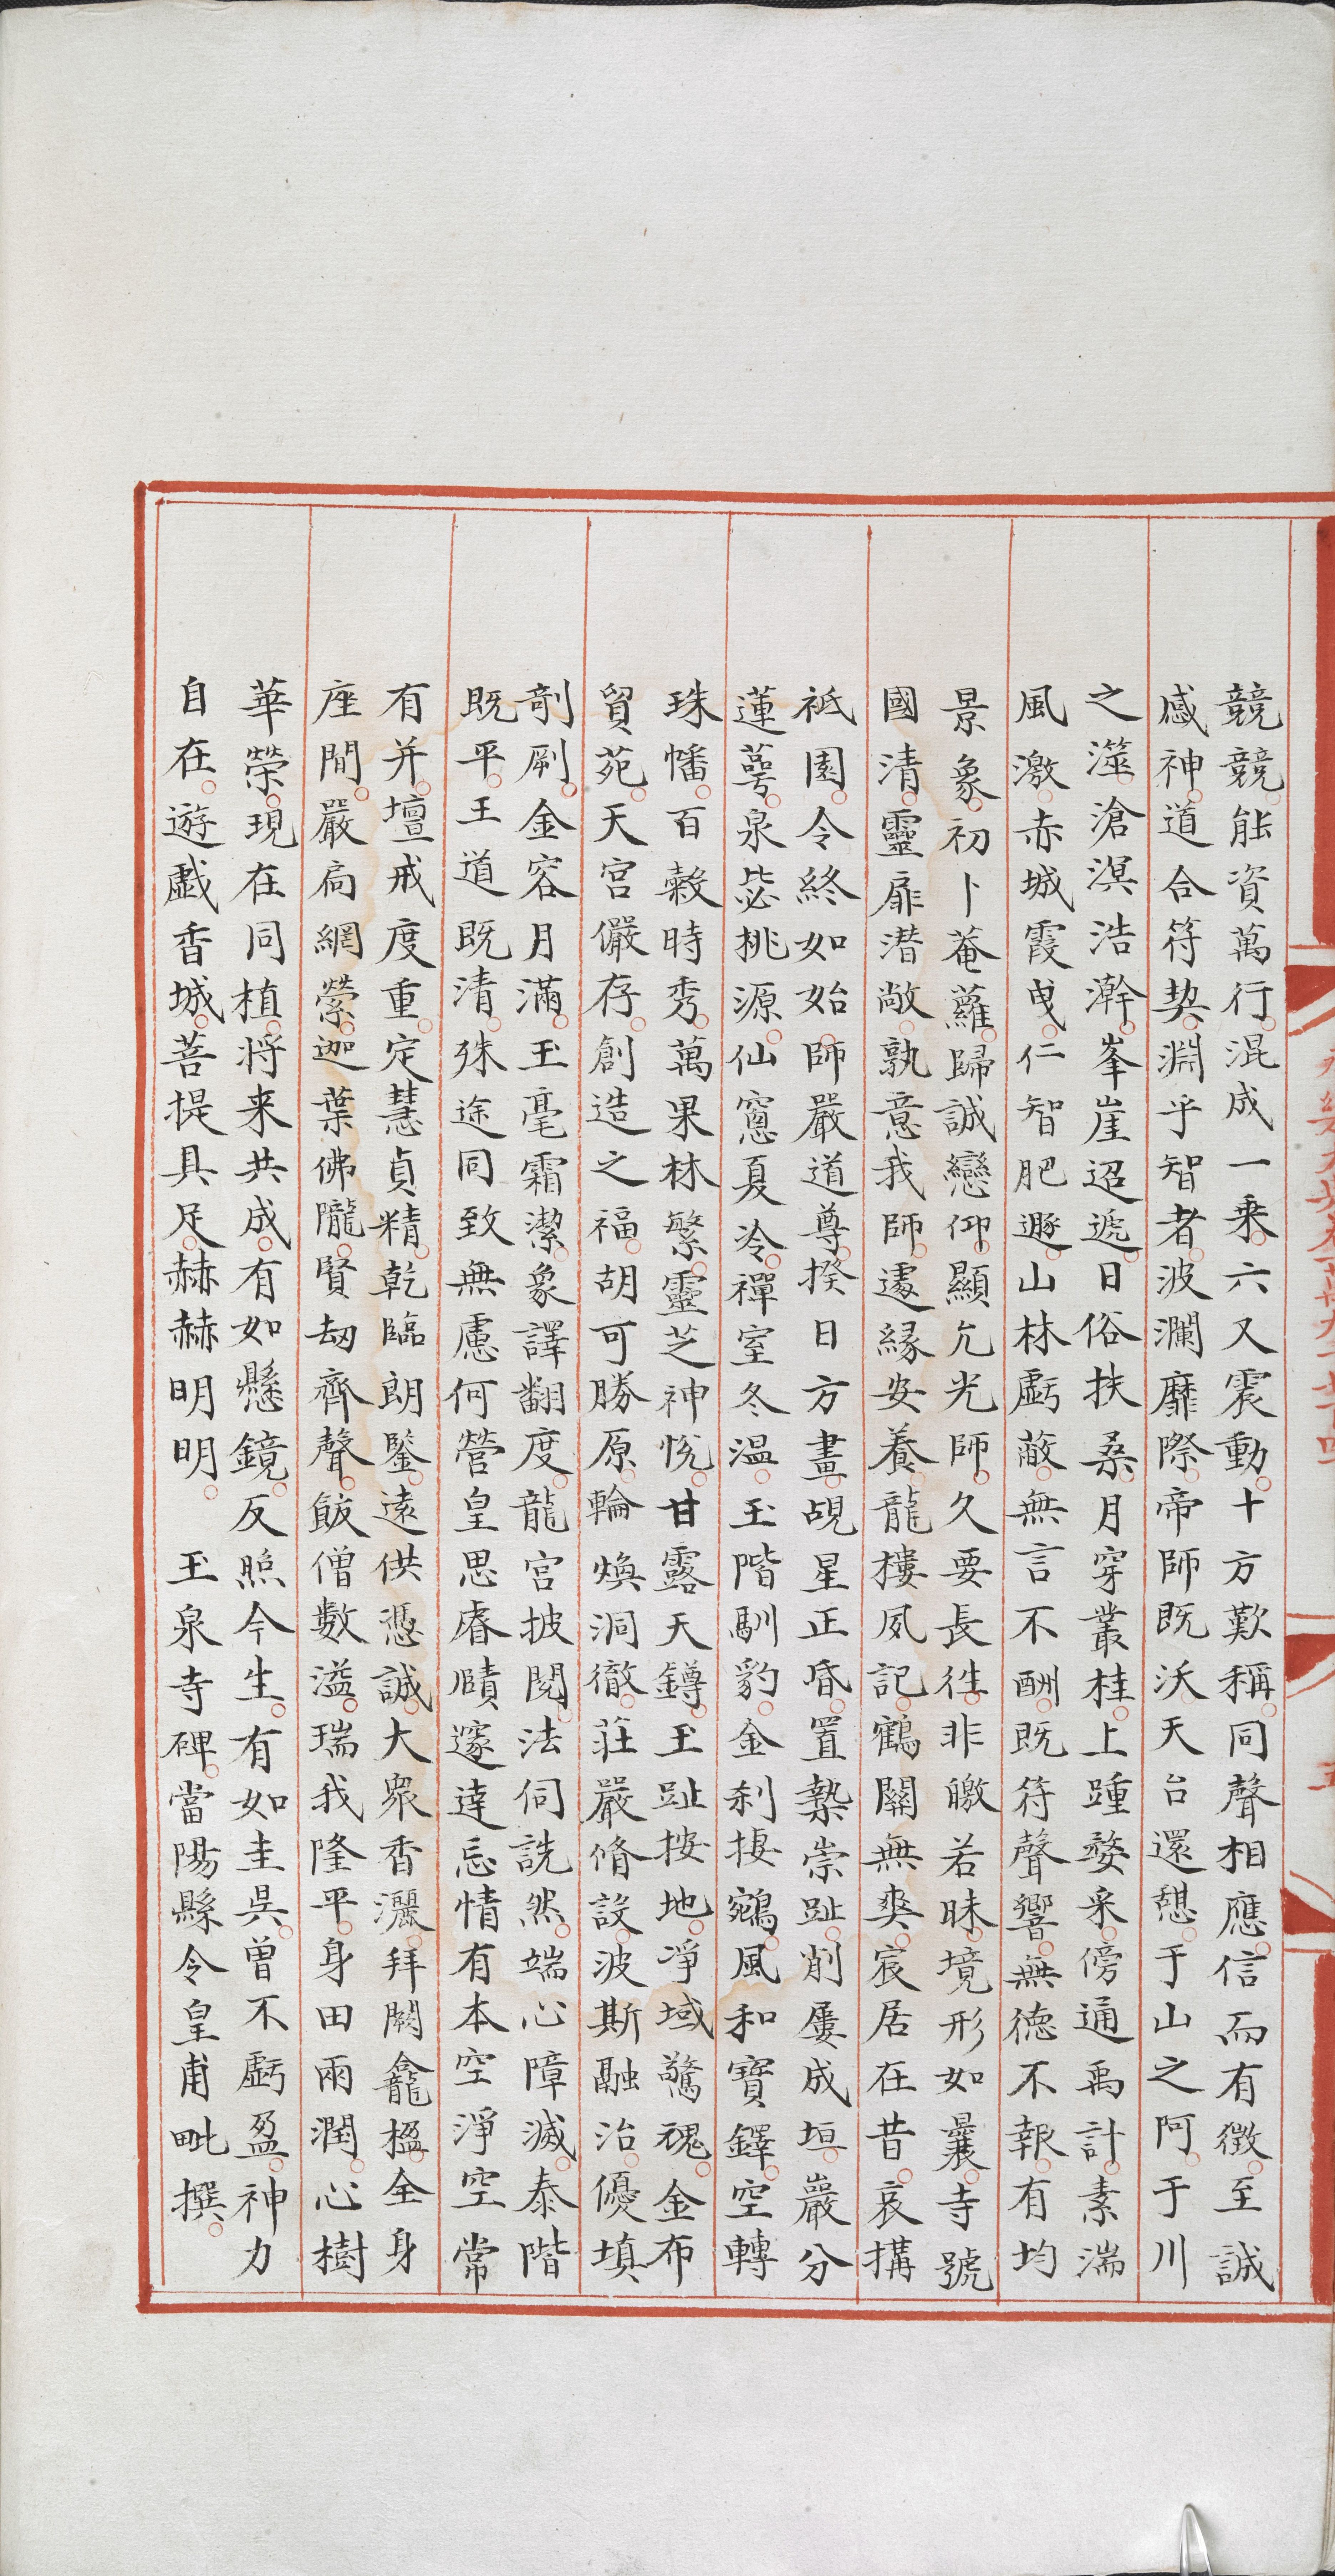 競競能資萬行混成一乘六又震動十方歎稱同聲相應信而有徵至誠
感神道合符契淵乎智者波瀾靡際帝師既沃天台還憩于山之阿于川
之澨滄溟浩瀚峯崖迢遞日俗扶桑月穿叢桂上踵婺采傍通禹計素湍
風激赤城霞曳仁智肥遯山林虧蔽無言不酬既符聲響無德不報有均
景象初卜菴蘿歸誠戀仰顯允光師久要長往非皦若昧境形如曩寺號
國清靈扉潜敞孰意我師遽緣安養龍樓夙記鶴關無爽宸居在昔哀搆
祗園令終如始師嚴道尊揆日方晝覘星正昏置槷崇趾削屢成垣巖分
蓮萼泉毖桃源仙窻夏冷禪室冬溫玉階馴豹金刹捿鵷風和寶鐸空轉
珠幡百穀時秀萬果林繁靈芝神悅甘露天鐏玉趾按地凈域驚魂金布
貿苑天宮儼存創造之福胡可勝原輪煥洞徹莊嚴脩設波斯融冶優填
剞劂金容月滿玉毫霜潔象譯翻度龍宮披閱法侣詵然端心障滅泰階
既平王道既清殊途同致無慮何營皇思睿賾邃達忘情有本空淨空常
有并壇戒度重定慧貞精乾臨朗鑒遠供憑誠大衆香灑拜闕龕楹全身
座間嚴扃網縈迦葉佛隴賢刼齊聲飯僧數溢瑞我隆平身田雨潤心樹
華榮現在同植将来共成有如懸鏡反照今生有如圭吳曾不虧盈神力
自在遊戯香城菩提具足赫赫明明　玉泉寺碑當陽縣令皇甫毗撰